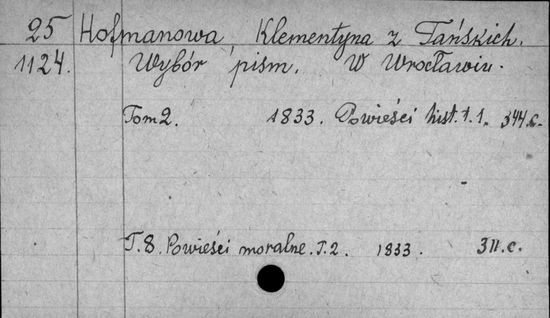 25 Hofmanowa, Klementyna z Tańskich.
1124. Wybór pism. W Wrocławiu.
Tom 2. 1833. Powieści hist. t. 1. 344 c.
T. 8. Powieści moralne. T. 2. 1833. 311. c.